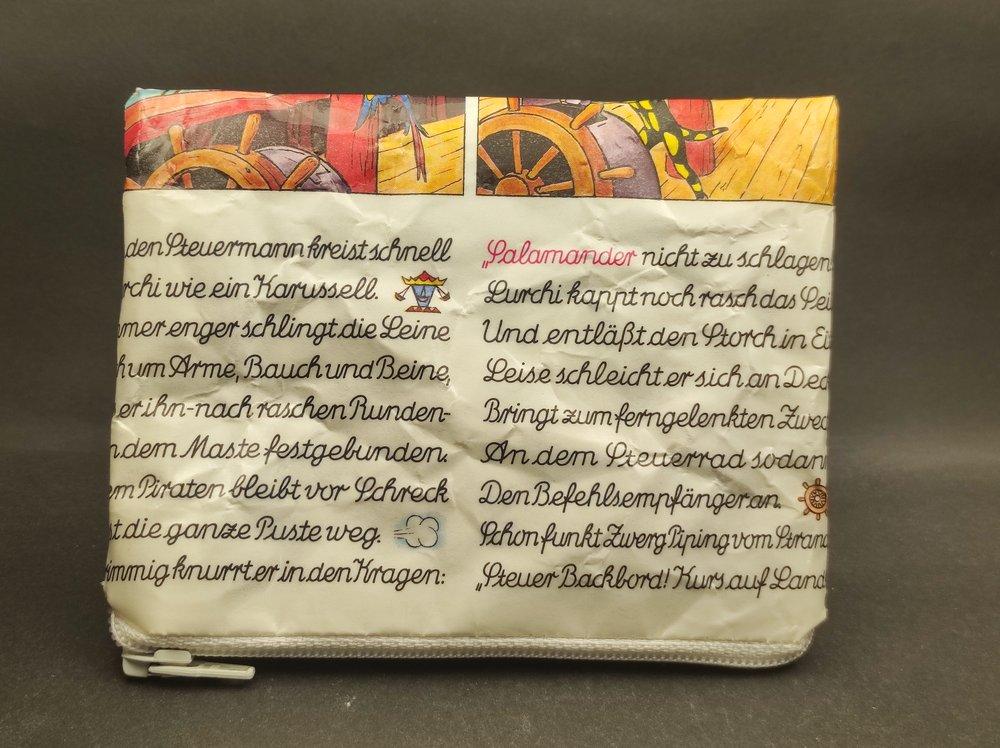 den Steuermann kreist schnell
rchi wie ein Karussell.
mer enger schlingt die Leine
h um Arme, Bauch und Beine,
er ihn - nach raschen Runden -
n dem Maste festgebunden.
em Piraten bleibt vor Schreck
st die ganze Puste weg.
immig knurrt er in den Kragen:
„Salamander nicht zu schlagen
Lurchi kappt noch rasch das Sei
Und entläßt den Storch in Ei
Leise schleicht er sich an Dec
Bringt zum ferngelenkten Zwec
An dem Steuerrad sodann
Den Befehlsempfänger an.
Schon funkt Zwerg Piping vom Strand
„Steuer Backbord! Kurs auf Land